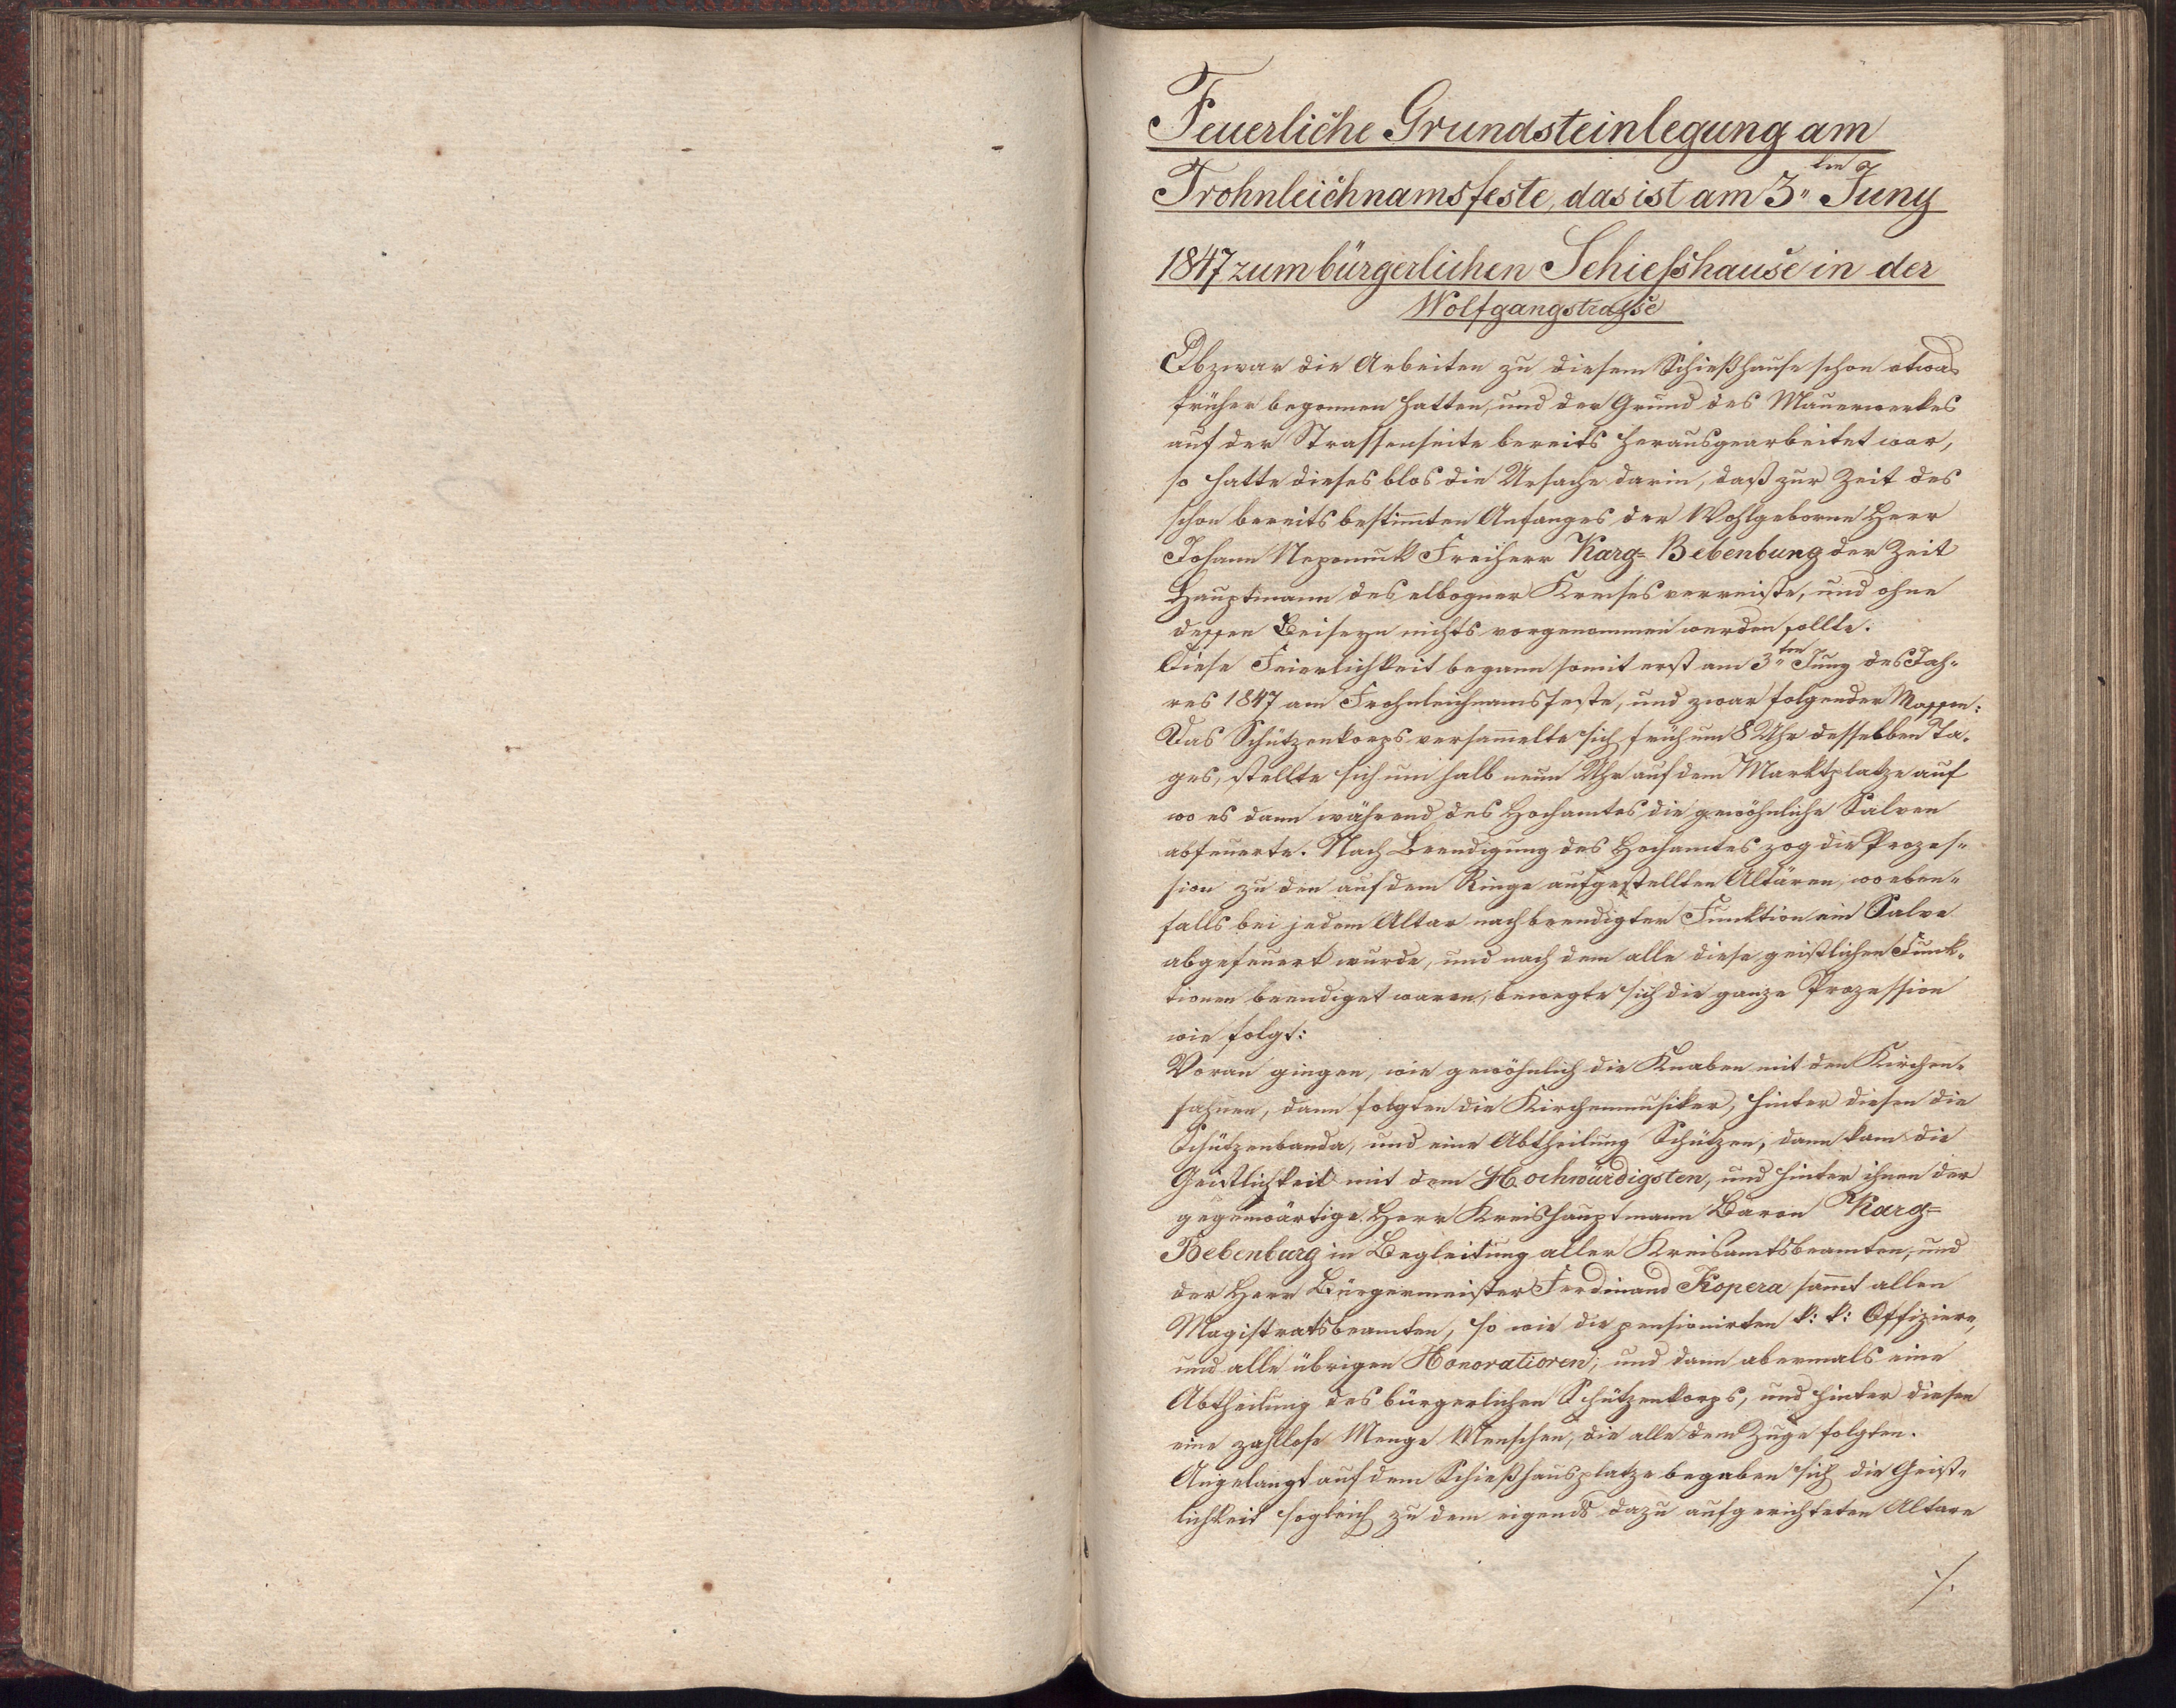 Feuerliche Grundsteinlegung am
Frohnleichnamsfeste, das ist am 3ten Juny
1847 zum bürgerlichen Schießhause in der
Wolfgangstrasse
Obzwar die Arbeiten zu diesem Schießhause schon etwas
früher begonnen hatten, und der Grund des Mauerwerkes
auf der Strassenseite bereits herausgearbeitet war,
so hatte dieses blos die Ursache darin, daß zur Zeit des
schon bereits bestimmten Anfanges der Wohlgeborne Herr
Johann Nepomuk Freiherr Karg= Bebenbung der Zeit
Hauptmann des elbogner Kreises verreiste, und ohne
dessen Beiseyn nichts vorgenommen werden sollte.
Diese Feierlichkeit begann somit erst am 3ten Juny des Jah=
res 1847 am Frohnleichnamsfeste, und zwar folgender Massen:
Das Schützenkorps versammelte sich früh um 8 Uhr desselben Ta=
ges, stellte sich um halb neun Uhr auf dem Marktplatze auf
wo es dann während des Hochamtes die gewöhnliche Salven
abfeuerte. Nach Beendigung des Hochamtes zog die Prozes=
sion zu den auf dem Ringe aufgestellten Altären, wo eben=
falls bei jedem Altar nach beendigter Funktion ein Salve
abgefeuert wurde, und nach dem alle diese geistlichen Funk=
tionen beendiget waren, bewegte sich die ganze Prozession
wie folgt:
Voran giengen, wie gewöhnlich die Knaben mit den Kirchen=
fahnen, dann folgten die Kirchenmusiker, hinter diesen die
Schützenbanda, und eine Abtheilung Schützen, dann kam die
Geistlichkeit mit dem Hochwürdigsten, und hinter ihnen der
gegenwärtige Herr Kreishauptmann Baron Karg=
Bebenburg in Begleitung aller Kreisamtsbeamten, und
der Herr Bürgermeister Ferdinand Kopera sammt allen
Magistratsbeamten, so wie die pensionirten k: k: Offiziere,
und alle übrigen Honoratioren; und dann abermals eine
Abtheilung des bürgerlichen Schützenkorps, und hinter diesen
eine zahllose Menge Menschen, die alle dem Zuge folgten.
Angelangt auf dem Schießhausplatze begaben sich die Geist=
lichkeit sogleich zu dem eigends dazu aufgerichteten Altare
./.